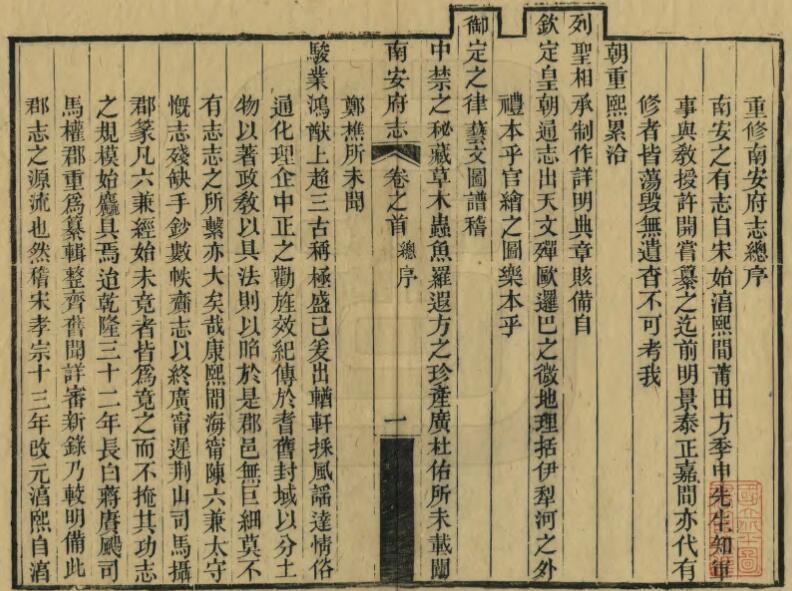 重修南安府志總序
南安之有志自宋始湻熙間莆田方季申先生知軍
事與教授許開嘗纂之迄前明景泰正嘉間亦代有
修者皆蕩毁無遺杳不可考我
朝重熙累洽
列聖相承制作詳明典章賅備自
欽定皇朝通志出天文殫歐邏巴之微地理括伊犁河之外
禮本乎官繪之圖樂本乎
御定之律藝文圖譜稽
中禁之秘藏草木蟲魚羅遐方之珍產廣杜佑所未載闡
南安府志 卷之首 總序 一
鄭樵所未聞
駿業鴻猷上趠三古稱極盛已爰出輶軒採風謡達情俗
通化理企中正之勸旌效紀傳於耆舊封域以分土
物以著政敎以具法則以昭於是郡邑無巨細莫不
有志志之所繫亦大矣哉康熙間海甯陳六兼太守
慨志殘缺手鈔數帙齎志以終廣甯遲荆山司馬攝
郡篆凡六兼經始未竟者皆爲竟之而不掩其功志
之規模始麤具焉迨乾隆三十二年長白蔣唐颺司
馬權郡重爲纂輯整齊舊聞詳審新錄乃較明備此
郡志之源流也然稽宋孝宗十三年改元湻熙自湻